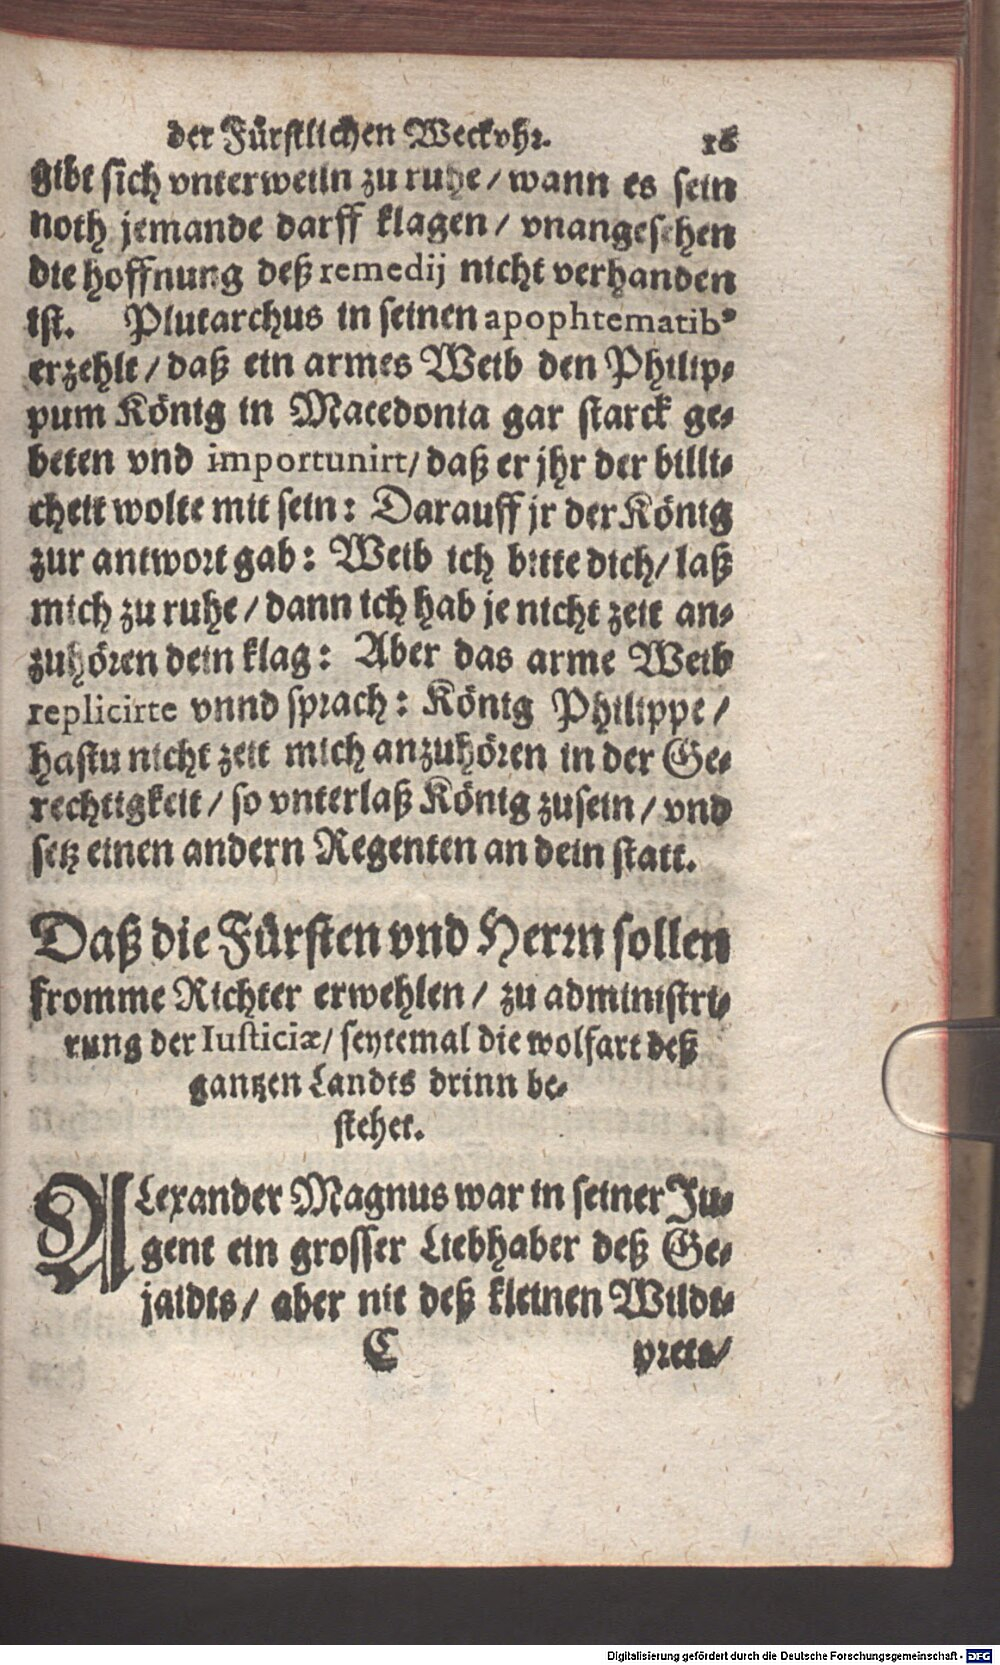 der Fürstlichen Weckvhr. 16
gibt sich vnterweiln zu ruhe / wann es sein
noth jemande darff klagen / vnangesehen
die hoffnung deß remedij nicht verhanden
ist. Plutarchus in seinen apophtematibꝰ
erzehlt / daß ein armes Weib den Philip-
pum König in Macedonia gar starck ge-
beten vnd importunirt / daß er jhr der billi-
cheit wolte mit sein: Darauff jr der König
zur antwort gab: Weib ich bitte dich / laß
mich zu ruhe / dann ich hab je nicht zeit an-
zuhören dein klag: Aber das arme Weib
replicirte vnnd sprach: König Philippe /
hastu nicht zeit mich anzuhören in der Ge-
rechtigkeit / so vnterlaß König zusein / vnd
setz einen andern Regenten an dein statt.
Daß die Fürsten vnd Herrn sollen
fromme Richter erwehlen / zu administri-
rung der Iusticiæ / seytemal die wolfart deß
gantzen Landts drinn be-
stehet.
ALexander Magnus war in seiner Ju-
gent ein grosser Liebhaber deß Ge-
jaidts / aber nit deß kleinen Wildt-
C prets /
Digitalisierung gefördert durch die Deutsche Forschungsgemeinschaft - DFG